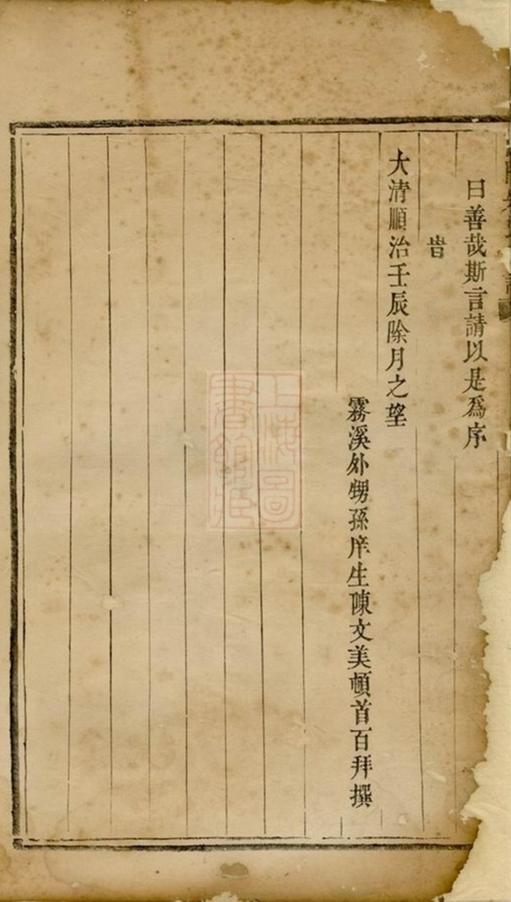 曰善哉斯言請以是爲序
旹
大清順治壬辰除月之望
霧溪外甥孫庠生陳文美頓首百拜撰
上海圖
書館藏